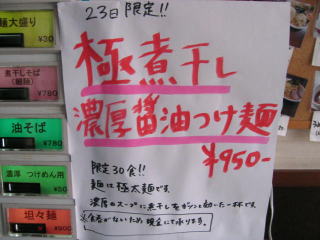 23日 限定!!
極煮干し
濃厚醤油つけ麺
¥950-
限定30食!!
麺は極太麺です。
濃厚のスープに煮干しをガツンと効いた一杯です。
※食券がないため現金にて承ります。
麺大盛り
¥30
煮干しそば
(細麺)
¥780
油そば
¥780
濃厚 つけめん用
¥50
坦々麺
¥900